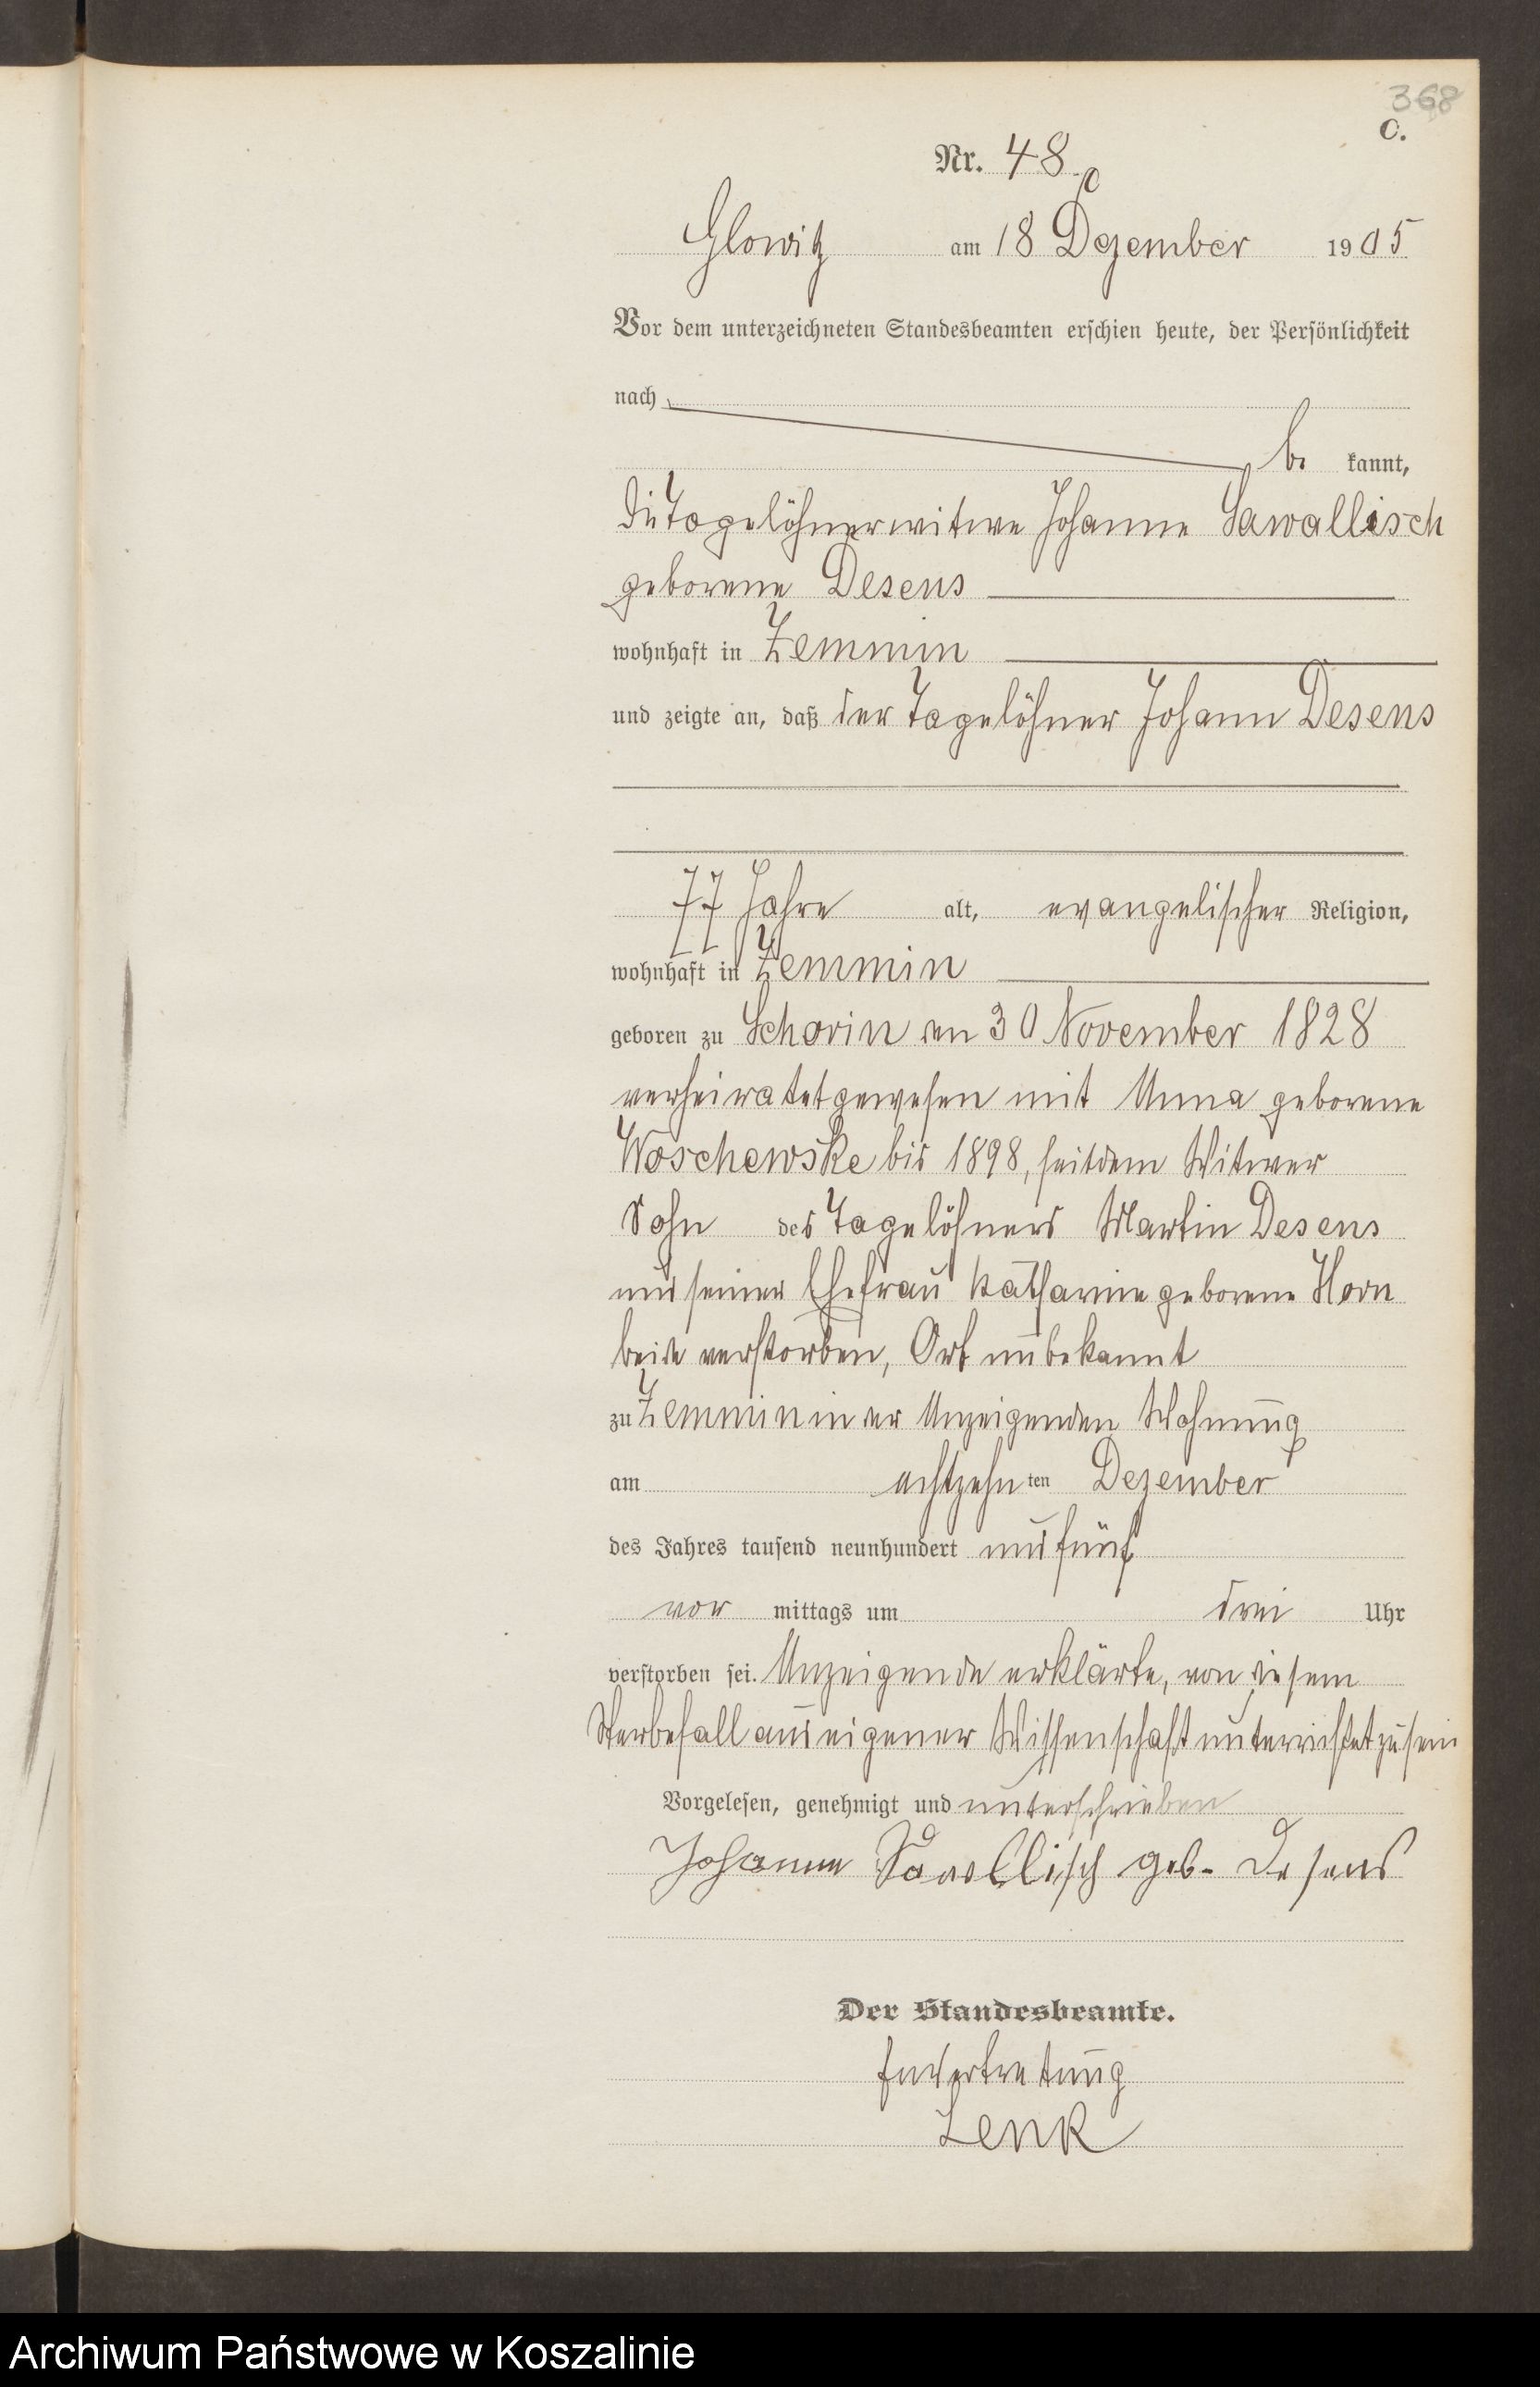 368
C.
Nr. 48
Glowitz am 18 Dezember 1905
Vor dem unterzeichneten Standesbeamten erschien heute, der Persönlichkeit
nach
be kannt,
die Tagelöhnerwitwe Johanne Sawallisch
geborene Desens
wohnhaft in Zemmin
und zeigte an, daß der Tagelöhner Johann Desens
77 Jahre alt, evangelischer Religion,
wohnhaft in Zemmin
geboren zu Schorin am 30 November 1828
verheiratet gewesen mit Anna geborene
Woschewske bis 1898, seitdem Witwer
Sohn des Tagelöhners Martin Desens
und seiner Ehefrau Katharine geborene Horn
beide verstorben, Ort unbekannt
zu Zemmin in der Anzeigenden Wohnung
am achtzehn ten Dezember
des Jahres tausend neunhundert und fünf
vor mittags um drei Uhr
verstorben sei. Anzeigende erklärte, von diesem
Sterbefall aus eigener Wissenschaft unterrichtet zu sein
Vorgelesen, genehmigt und unterschrieben
Johanne Sawallisch geb. Desens
Der Standesbeamte.
In Vertretung
Lenk
Archiwum Państwowe w Koszalinie